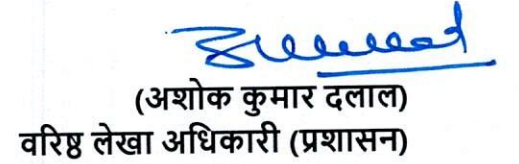 (अशोक कुमार दलाल)
वरिष्ठ लेखा अधिकारी (प्रशासन)